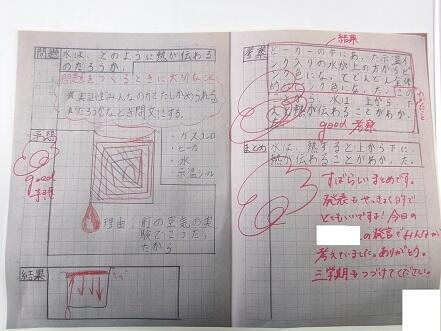 問題 水は、どのように熱が伝わる
のだろうか。
問題をつくるときに大切なこと
実証性(みんなのかでたしかめられる)
またろうかなど
問文にする。
予想
good
予想
・ガスコンロ
・ビーカ
・水
・示温シール
理由:前の空気の実
験でこうだった
だから
結果
結果
考察 ビーカーの中にあった示温イ
ンク入りの水が上の方からピ
ンク色になってどんどん全体
的にピンク色になった。この
ことから、水は、上から下
へと熱が伝わることがあかった。
good 考察
まとめ 水は、熱すると上から下に
熱が伝わることがあかった。
すばらしいまとめです。
発表もせっきょく的で
とてもいいですね!今日の
の発言でみんなが
考えていました。ありがとう。
三学期もつづけてください。